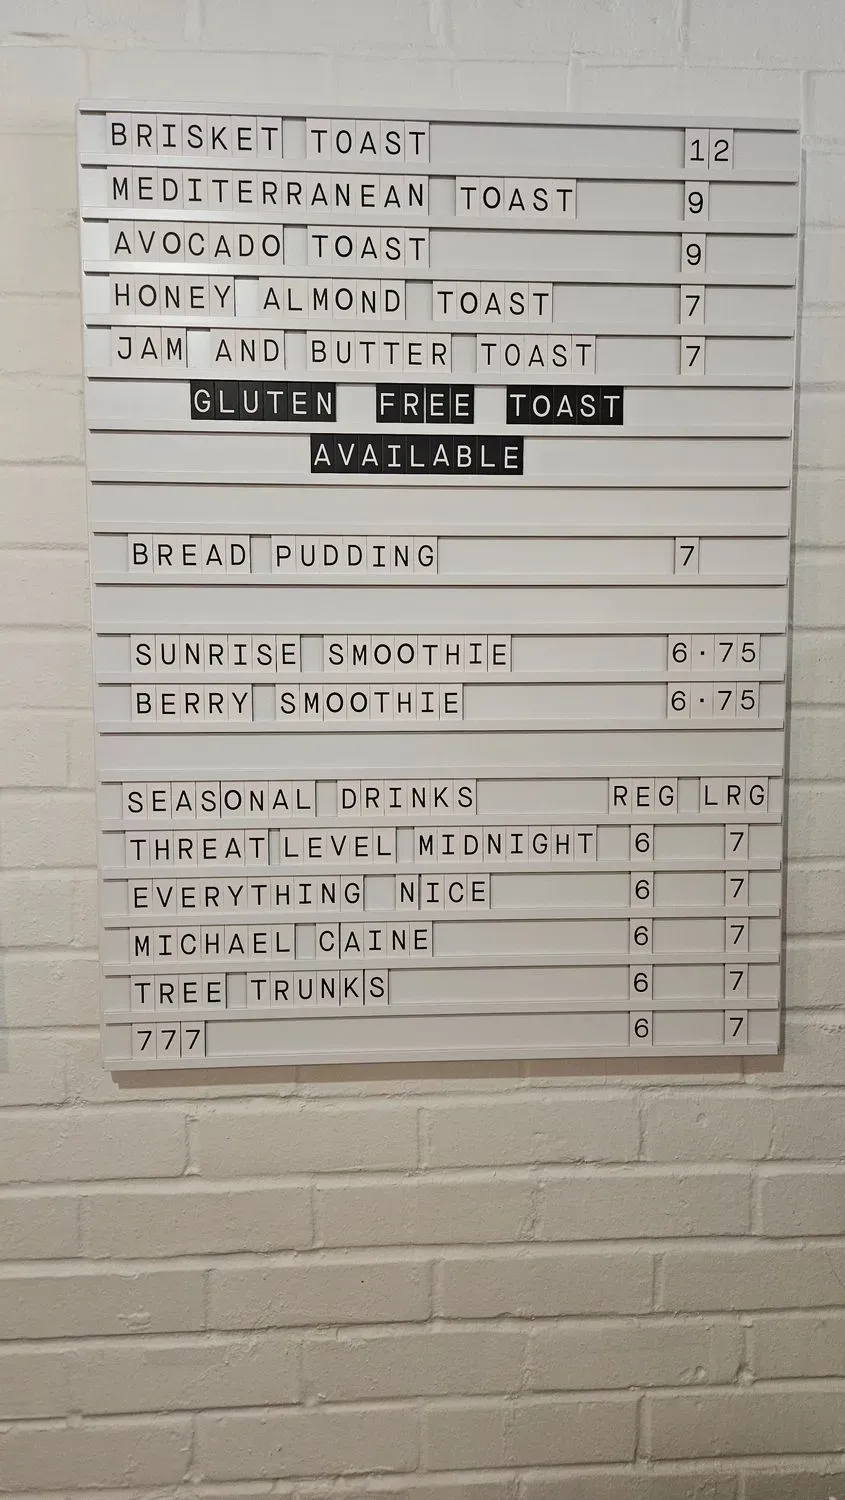 BRISKET TOAST 12
MEDITERRANEAN TOAST 9
AVOCADO TOAST 9
HONEY ALMOND TOAST 7
JAM AND BUTTER TOAST 7
GLUTEN FREE TOAST
AVAILABLE
BREAD PUDDING 7
SUNRISE SMOOTHIE 6·75
BERRY SMOOTHIE 6·75
SEASONAL DRINKS REG LRG
THREAT LEVEL MIDNIGHT 6 7
EVERYTHING NICE 6 7
MICHAEL CAINE 6 7
TREE TRUNKS 6 7
777 6 7